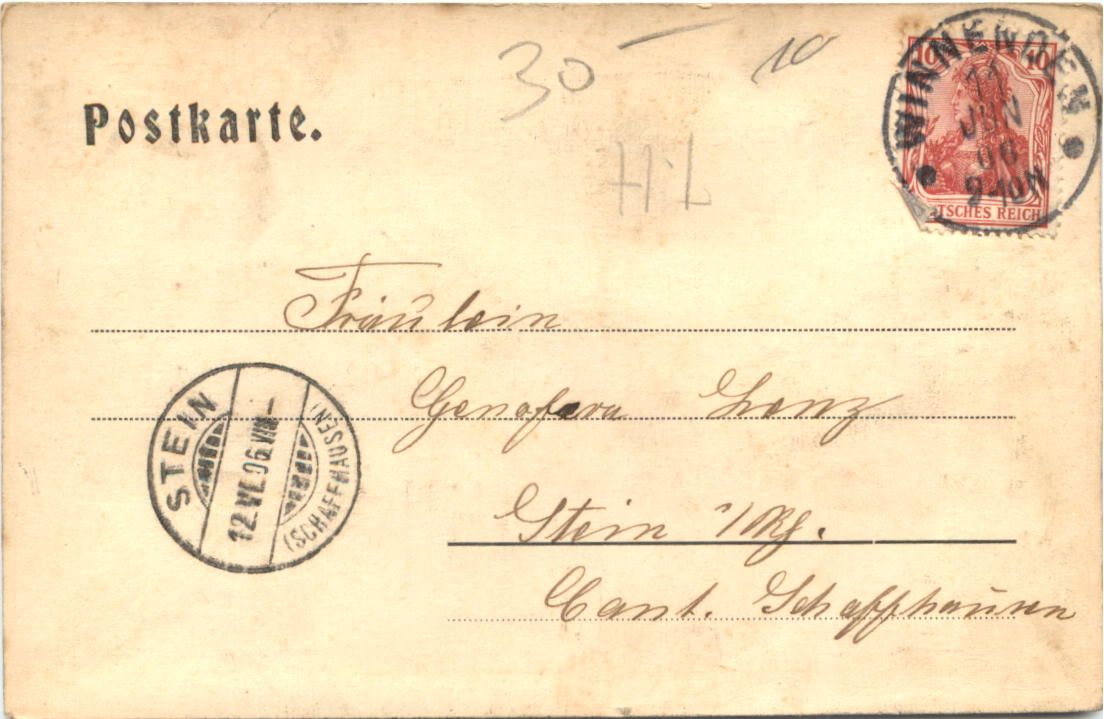 30 —
10
Postkarte.
H·L
10 10
TSCHES REICH
WINNENDEN
11
JUN
06
9-10N
Fräulein
Genofeva Lenz
Stein a/Rh.
Cant. Schaffhausen
STEIN
12.VI.06.VIII—
(SCHAFFHAUSEN)